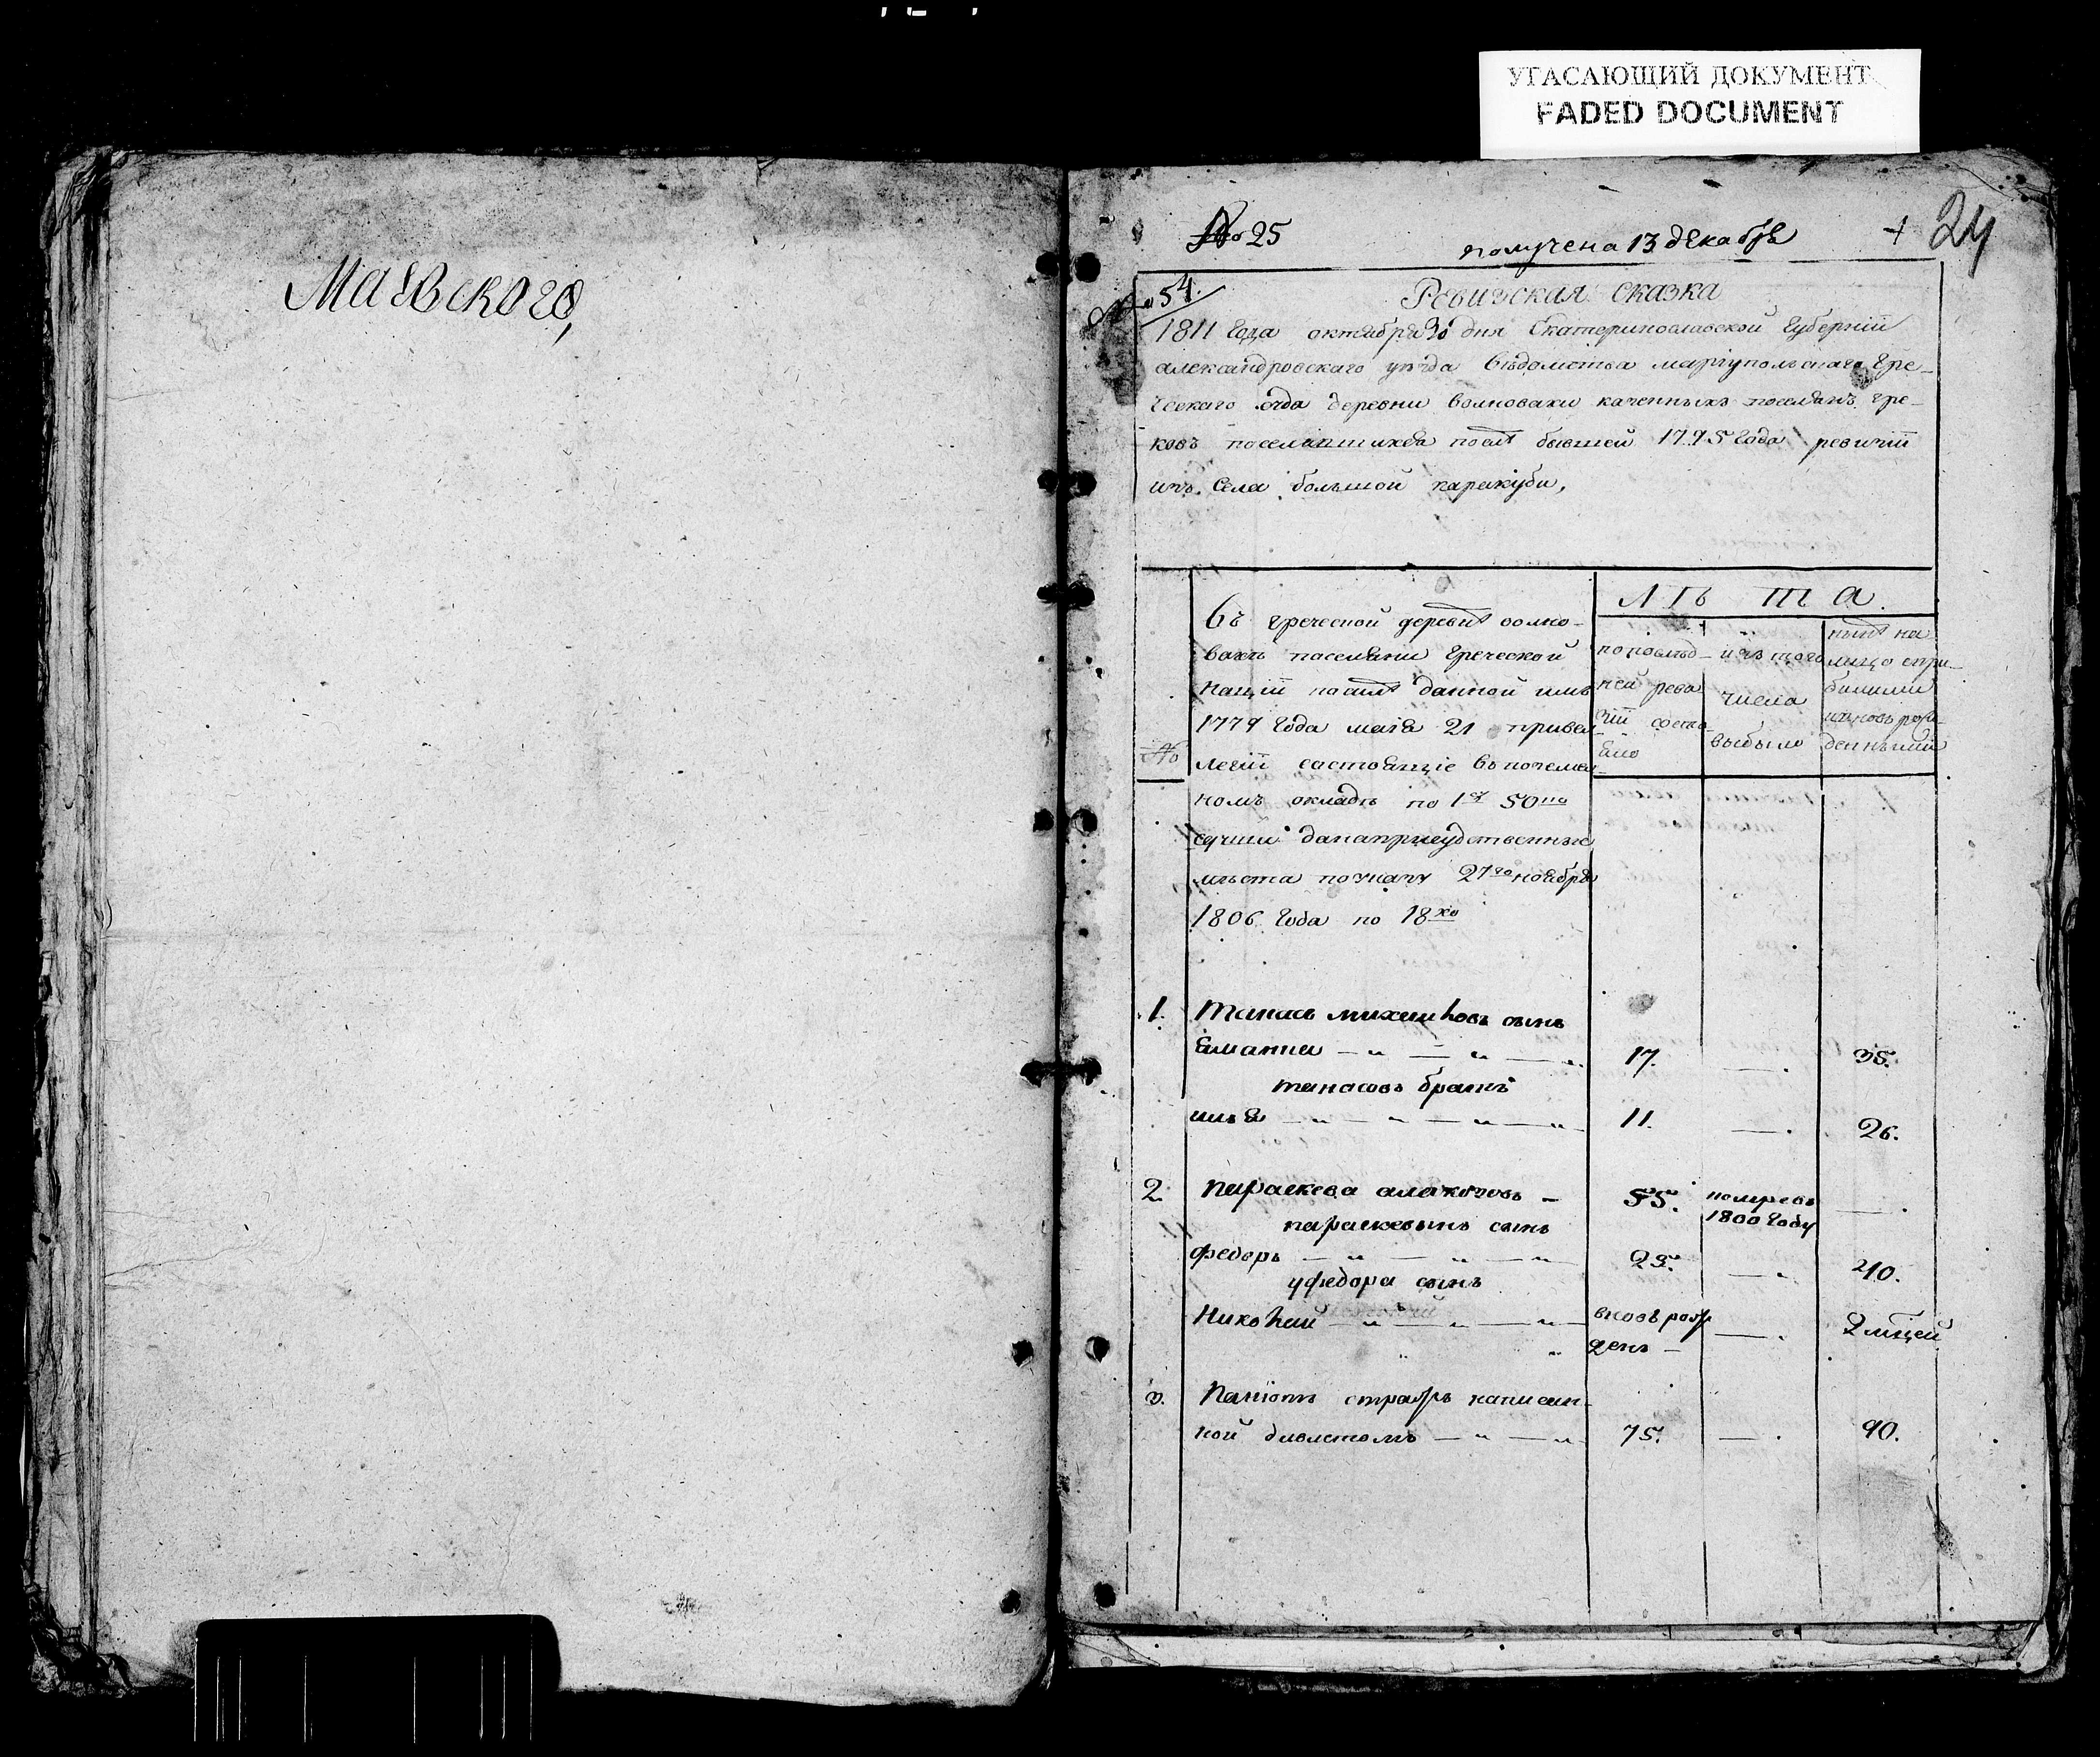 УГАСАЮЩИЙ ДОКУМЕНТ
FADED DOCUMENT
Маевского,
№ 25
получена 13 декабря
24
№ 54.
Ревизская сказка
1811 года октября 30 дня Екатеринославской губернїи
александровскаго уѣзда вѣдомства марїупольскаго гре-
ческаго суда деревни волновахи казенныхъ поселянъ гре-
ковъ поселившихся послѣ бывшей 1795 года ревизїи
изъ Села большой каракуби,
№
Въ греческой деревнѣ волно-
вахѣ поселяни греческой
нацїи послѣ данной имъ
1779 года маія 21 привел
легїи состоящїе в поземел-
номъ окладѣ по 1 р 50 ко
сверхъ
мѣста по указу 27го ноября
1806 года по 18 ко
Л Ѣ Т А.
по послѣд-
ней реви
зїи состо-
яло
изъ того
числа
выбыло
нынѣ на
лицо спри-
былими
и вновь рож
денными
1. Танасъ михайловъ сынъ
Елманча 17. — 35.
танасовъ братъ
илья 11. — 26.
2. Параскева 55. помреъ
1800 году —
параскевинъ сынъ
Федоръ 25. — 40.
у федора сынъ
Николай вновь рож
денъ — 2 мцей
3. Панїотъ написан-
ной 75. — 90.